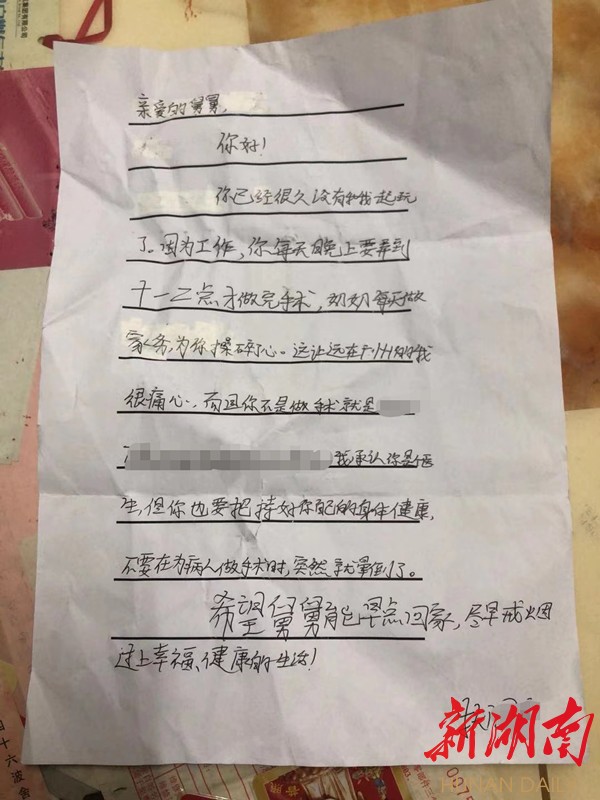 亲爱的舅舅,
你好!
你已经很久没有和我起玩
了。因为工作,你每天晚上要弄到
十一二点才做完手术,奶奶每天做
家务,为你操碎了心。这让远在广州的我
很痛心,而因你不是做手术就是
我承认你是个医
生,但你也要把持好你自己的身体健康,
不要在为病人做手术时,突然就晕倒了。
希望舅舅能早点回家,尽早戒烟
过上幸福、健康的生活!
新湖南
HUNAN DAILY
四十六波舍